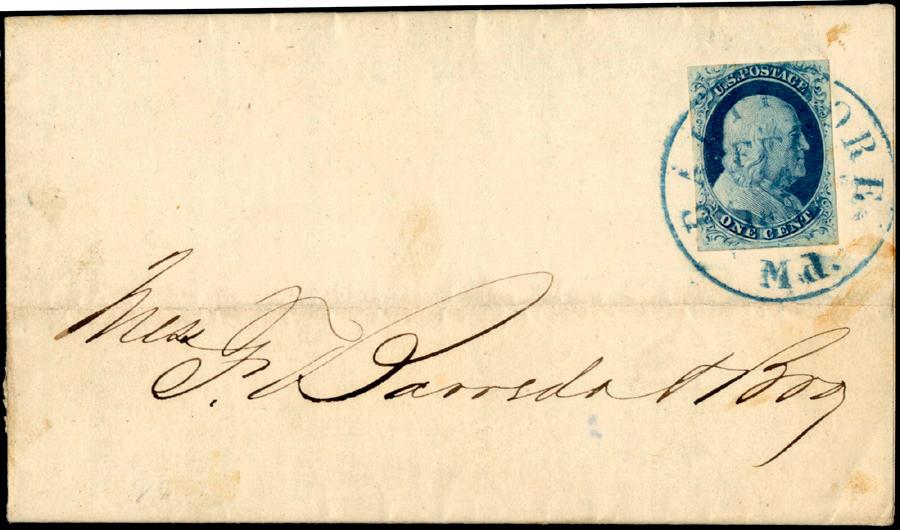 U.S. POSTAGE
ONE CENT
BALTIMORE
Md.
Mess F. Barreda & Bro